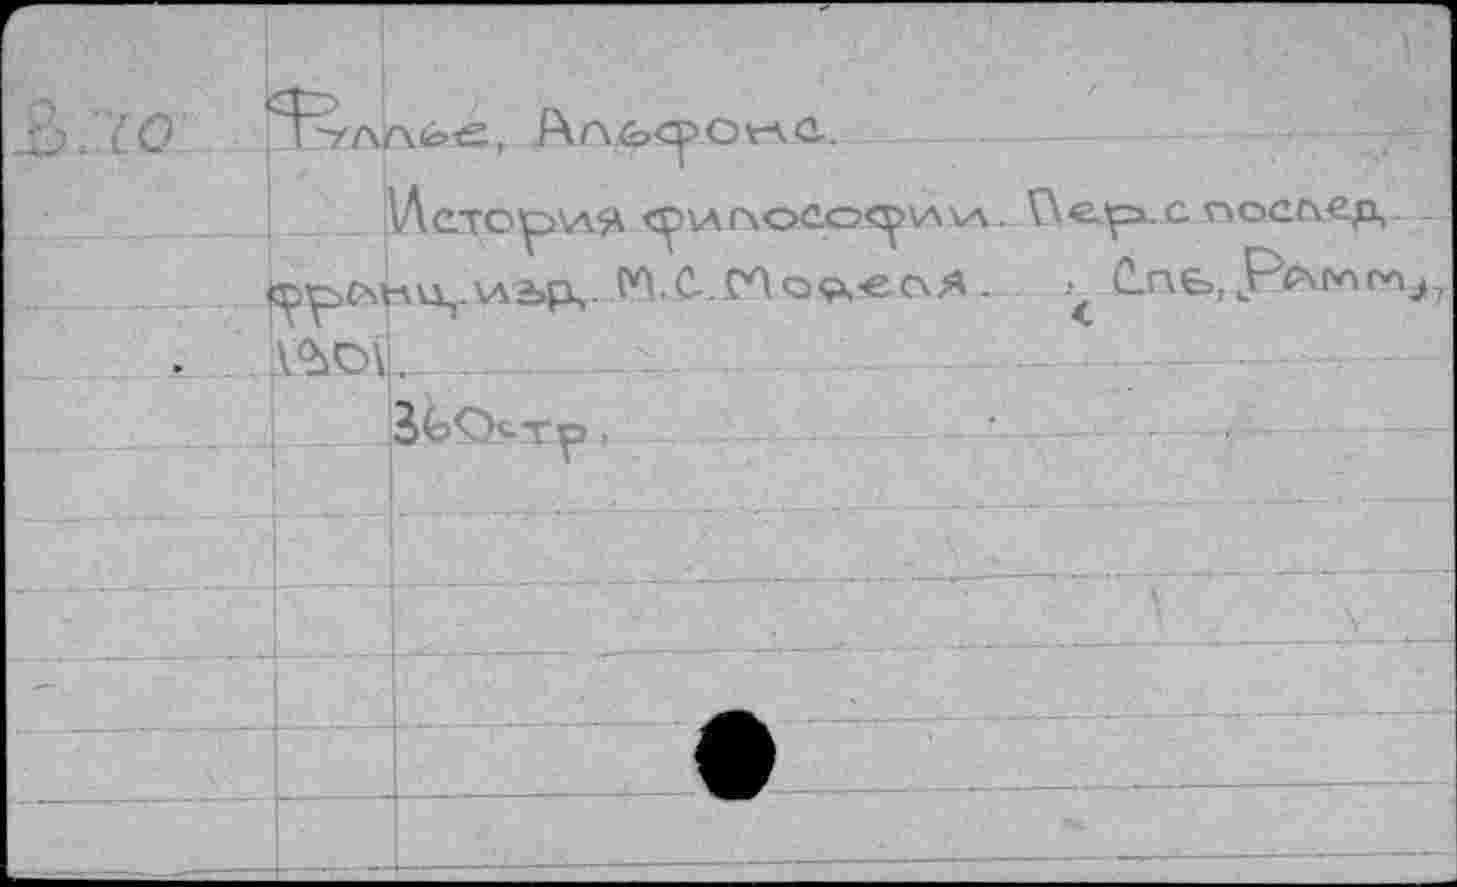 В.10 Фулье, Альфонс.
История философии. Пер. с послед.
франц. изд. М.С. Моделя. Спб,
1901.
360 стр.